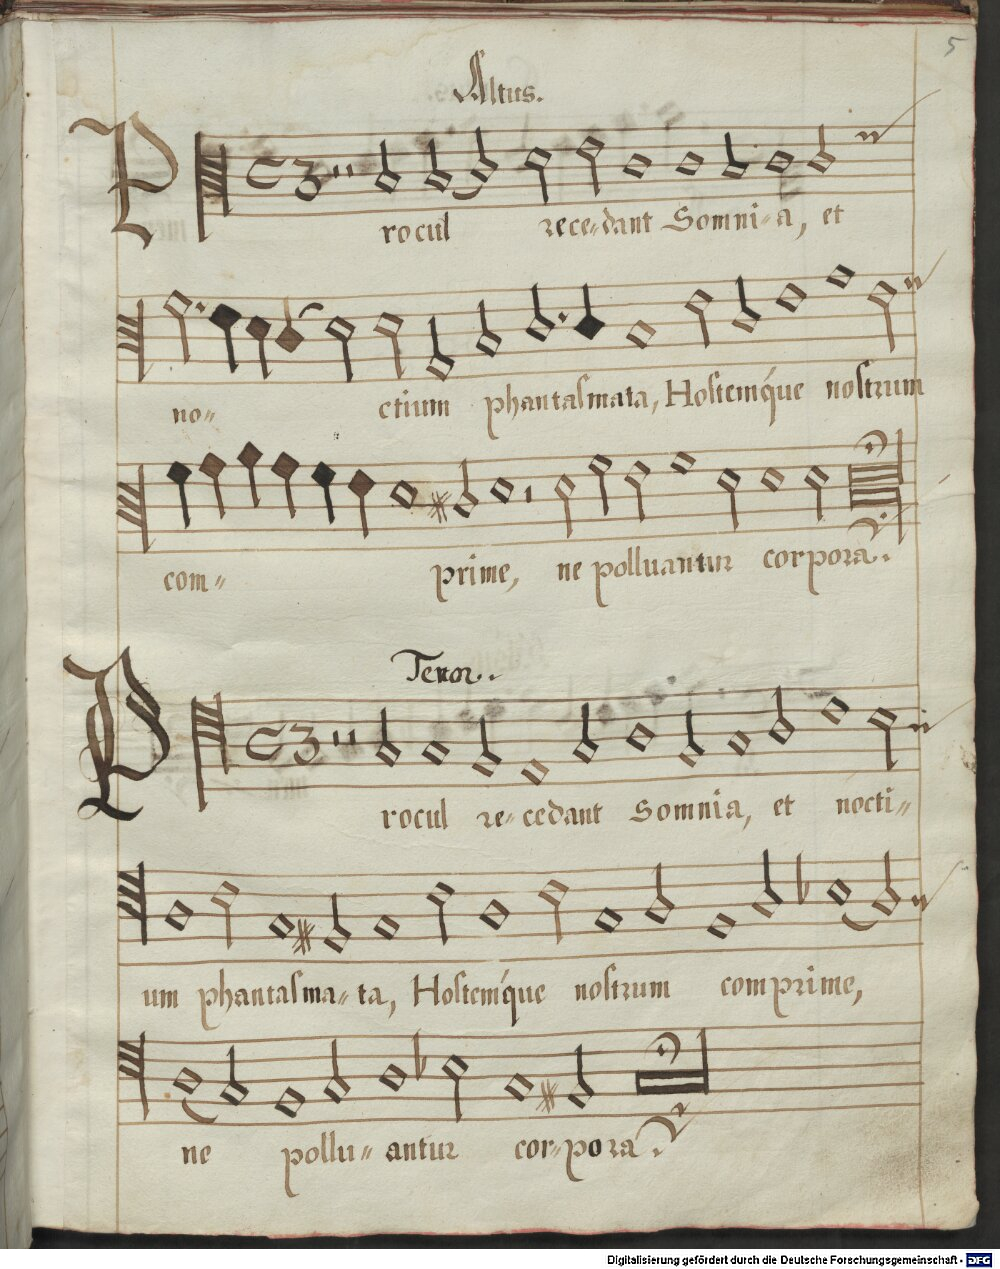 5
Altus.
Procul recedant Somni-a, et
no- ctium phantasmata, Hostemq́ue nostrum
com- prime, ne polluantur corpora.
Tenor.
Procul re-cedant Somnia, et nocti-
um phantasma-ta, Hostemq́ue nostrum comprime,
ne pollu-antur cor-pora.
Digitalisierung gefördert durch die Deutsche Forschungsgemeinschaft - DFG